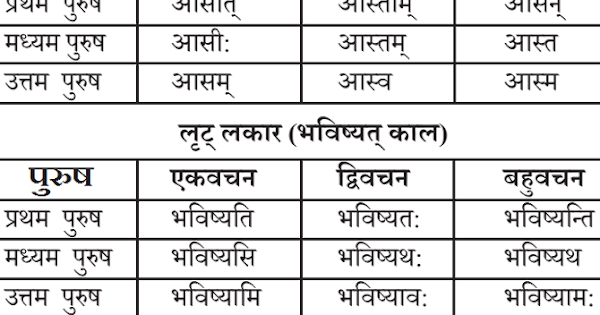 प्रथम पुरुष आसीत् आस्ताम् आसन्
मध्यम पुरुष आसी: आस्तम् आस्त
उत्तम पुरुष आसम् आस्व आस्म
लृट् लकार (भविष्यत् काल)
पुरुष एकवचन द्विवचन बहुवचन
प्रथम पुरुष भविष्यति भविष्यत: भविष्यन्ति
मध्यम पुरुष भविष्यसि भविष्यथ: भविष्यथ
उत्तम पुरुष भविष्यामि भविष्याव: भविष्याम: